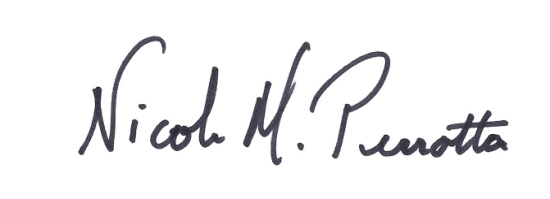 Nicole M. Perrotta